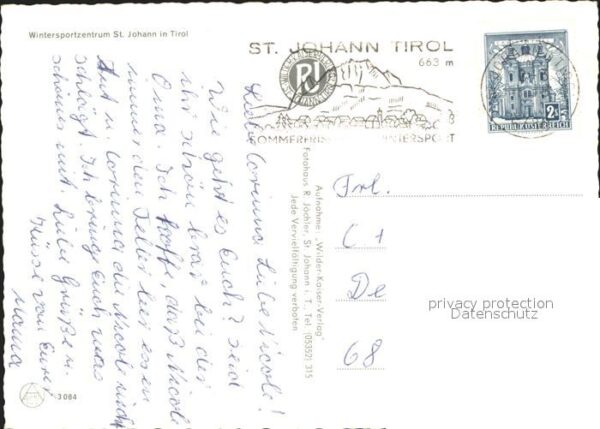 Wintersportzentrum St. Johann in Tirol
ST. JOHANN TIROL
663 m
SOMMERFRIS
INTERSPORT
2S
REPUBLIK ÖSTERREICH
Liebe Corinna, Liebe Nicole!
Wie geht es Euch? Seid
ihr schön brav bei der
Oma. Ich hoffe, daß Nicole
immer den Teller leer essen
tut u. Corinna die Nicole nicht
schlägt. Ich bring Euch was
schönes mit. Liebe Grüße u.
Küsse von Eurer
Mama
Aufnahme: „Wilder-Kaiser-Verlag"
Fotohaus R. Jöchler, St. Johann i. T., Tel. (05352) 315
Jede Vervielfältigung verboten
Frl.
C
De
68
privacy protection
Datenschutz
3084